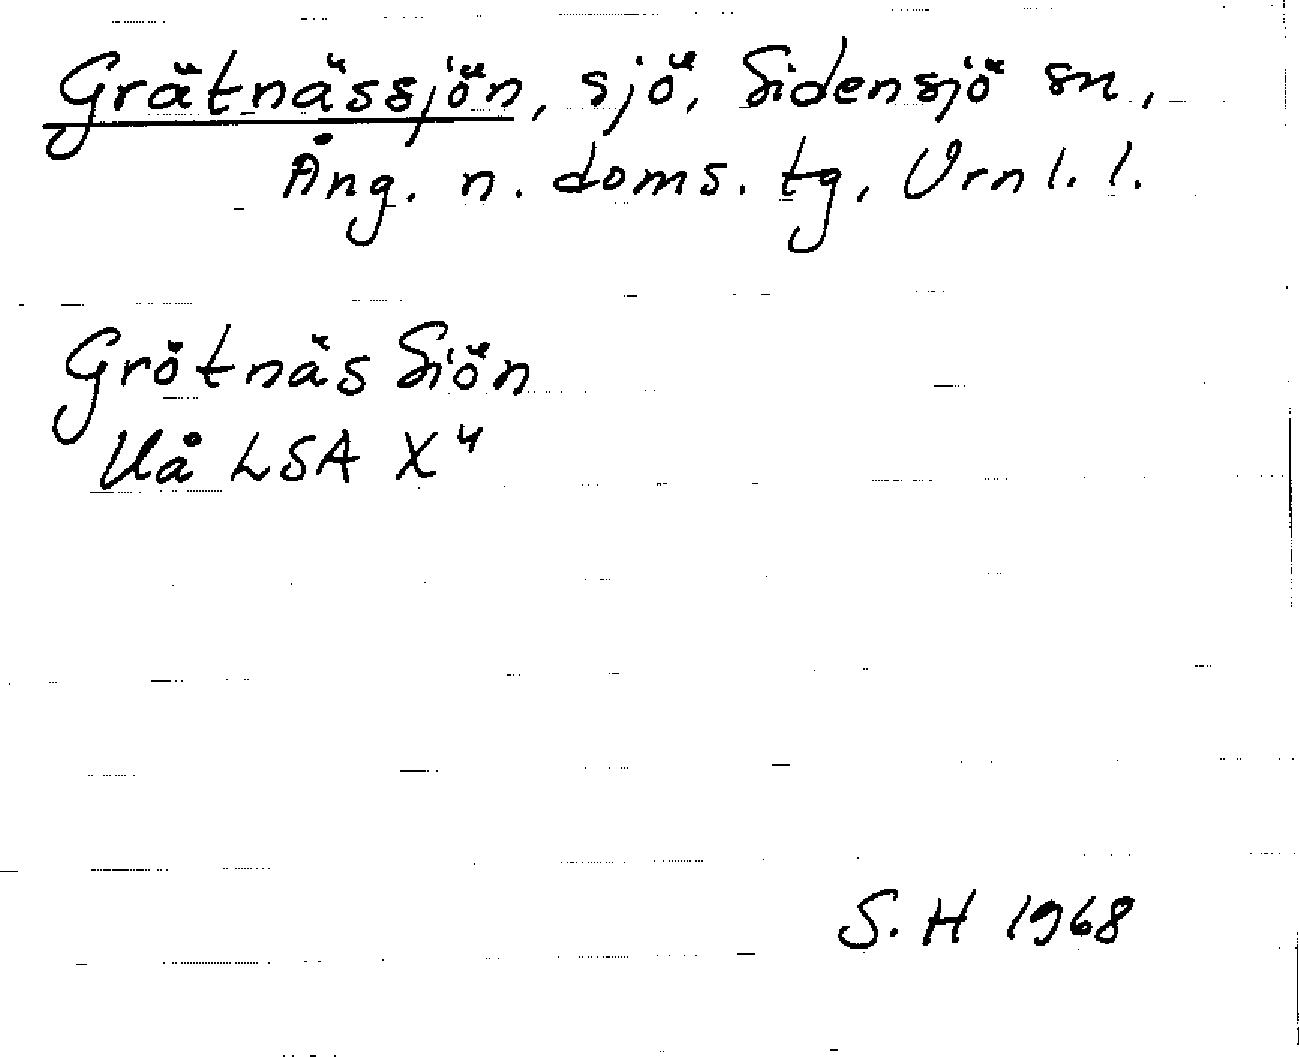 Grätnässjön, sjö, Sidensjö sn,
Ång. n. doms. tg, Vrnl. l.
Grötnäs Siön
Uå LSA X4
S. H 1968